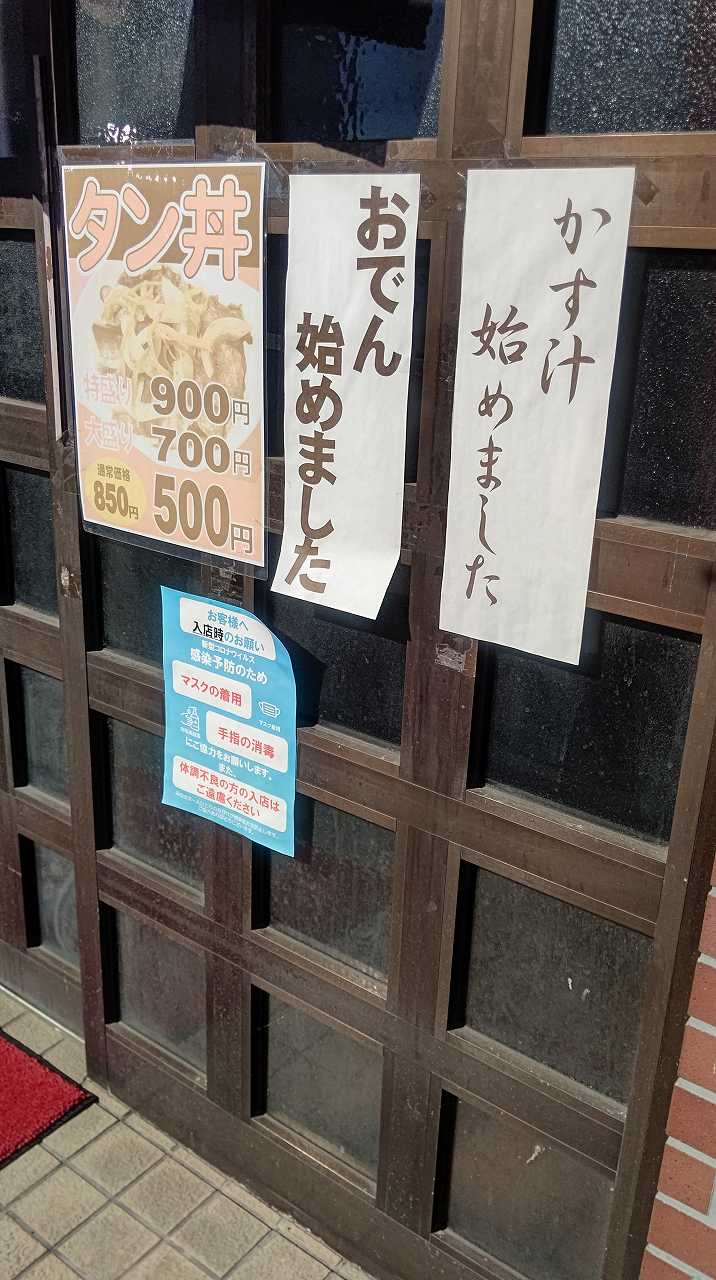 タン丼
特盛り 900円
大盛り 700円
通常価格
850円
500円
おでん
始めました
かす汁
始めました
お客様へ
入店時のお願い
新型コロナウイルス
感染予防のため
マスクの着用
マスク着用
手指の消毒
にご協力をお願いします。
また、
体調不良の方の入店は
ご遠慮ください